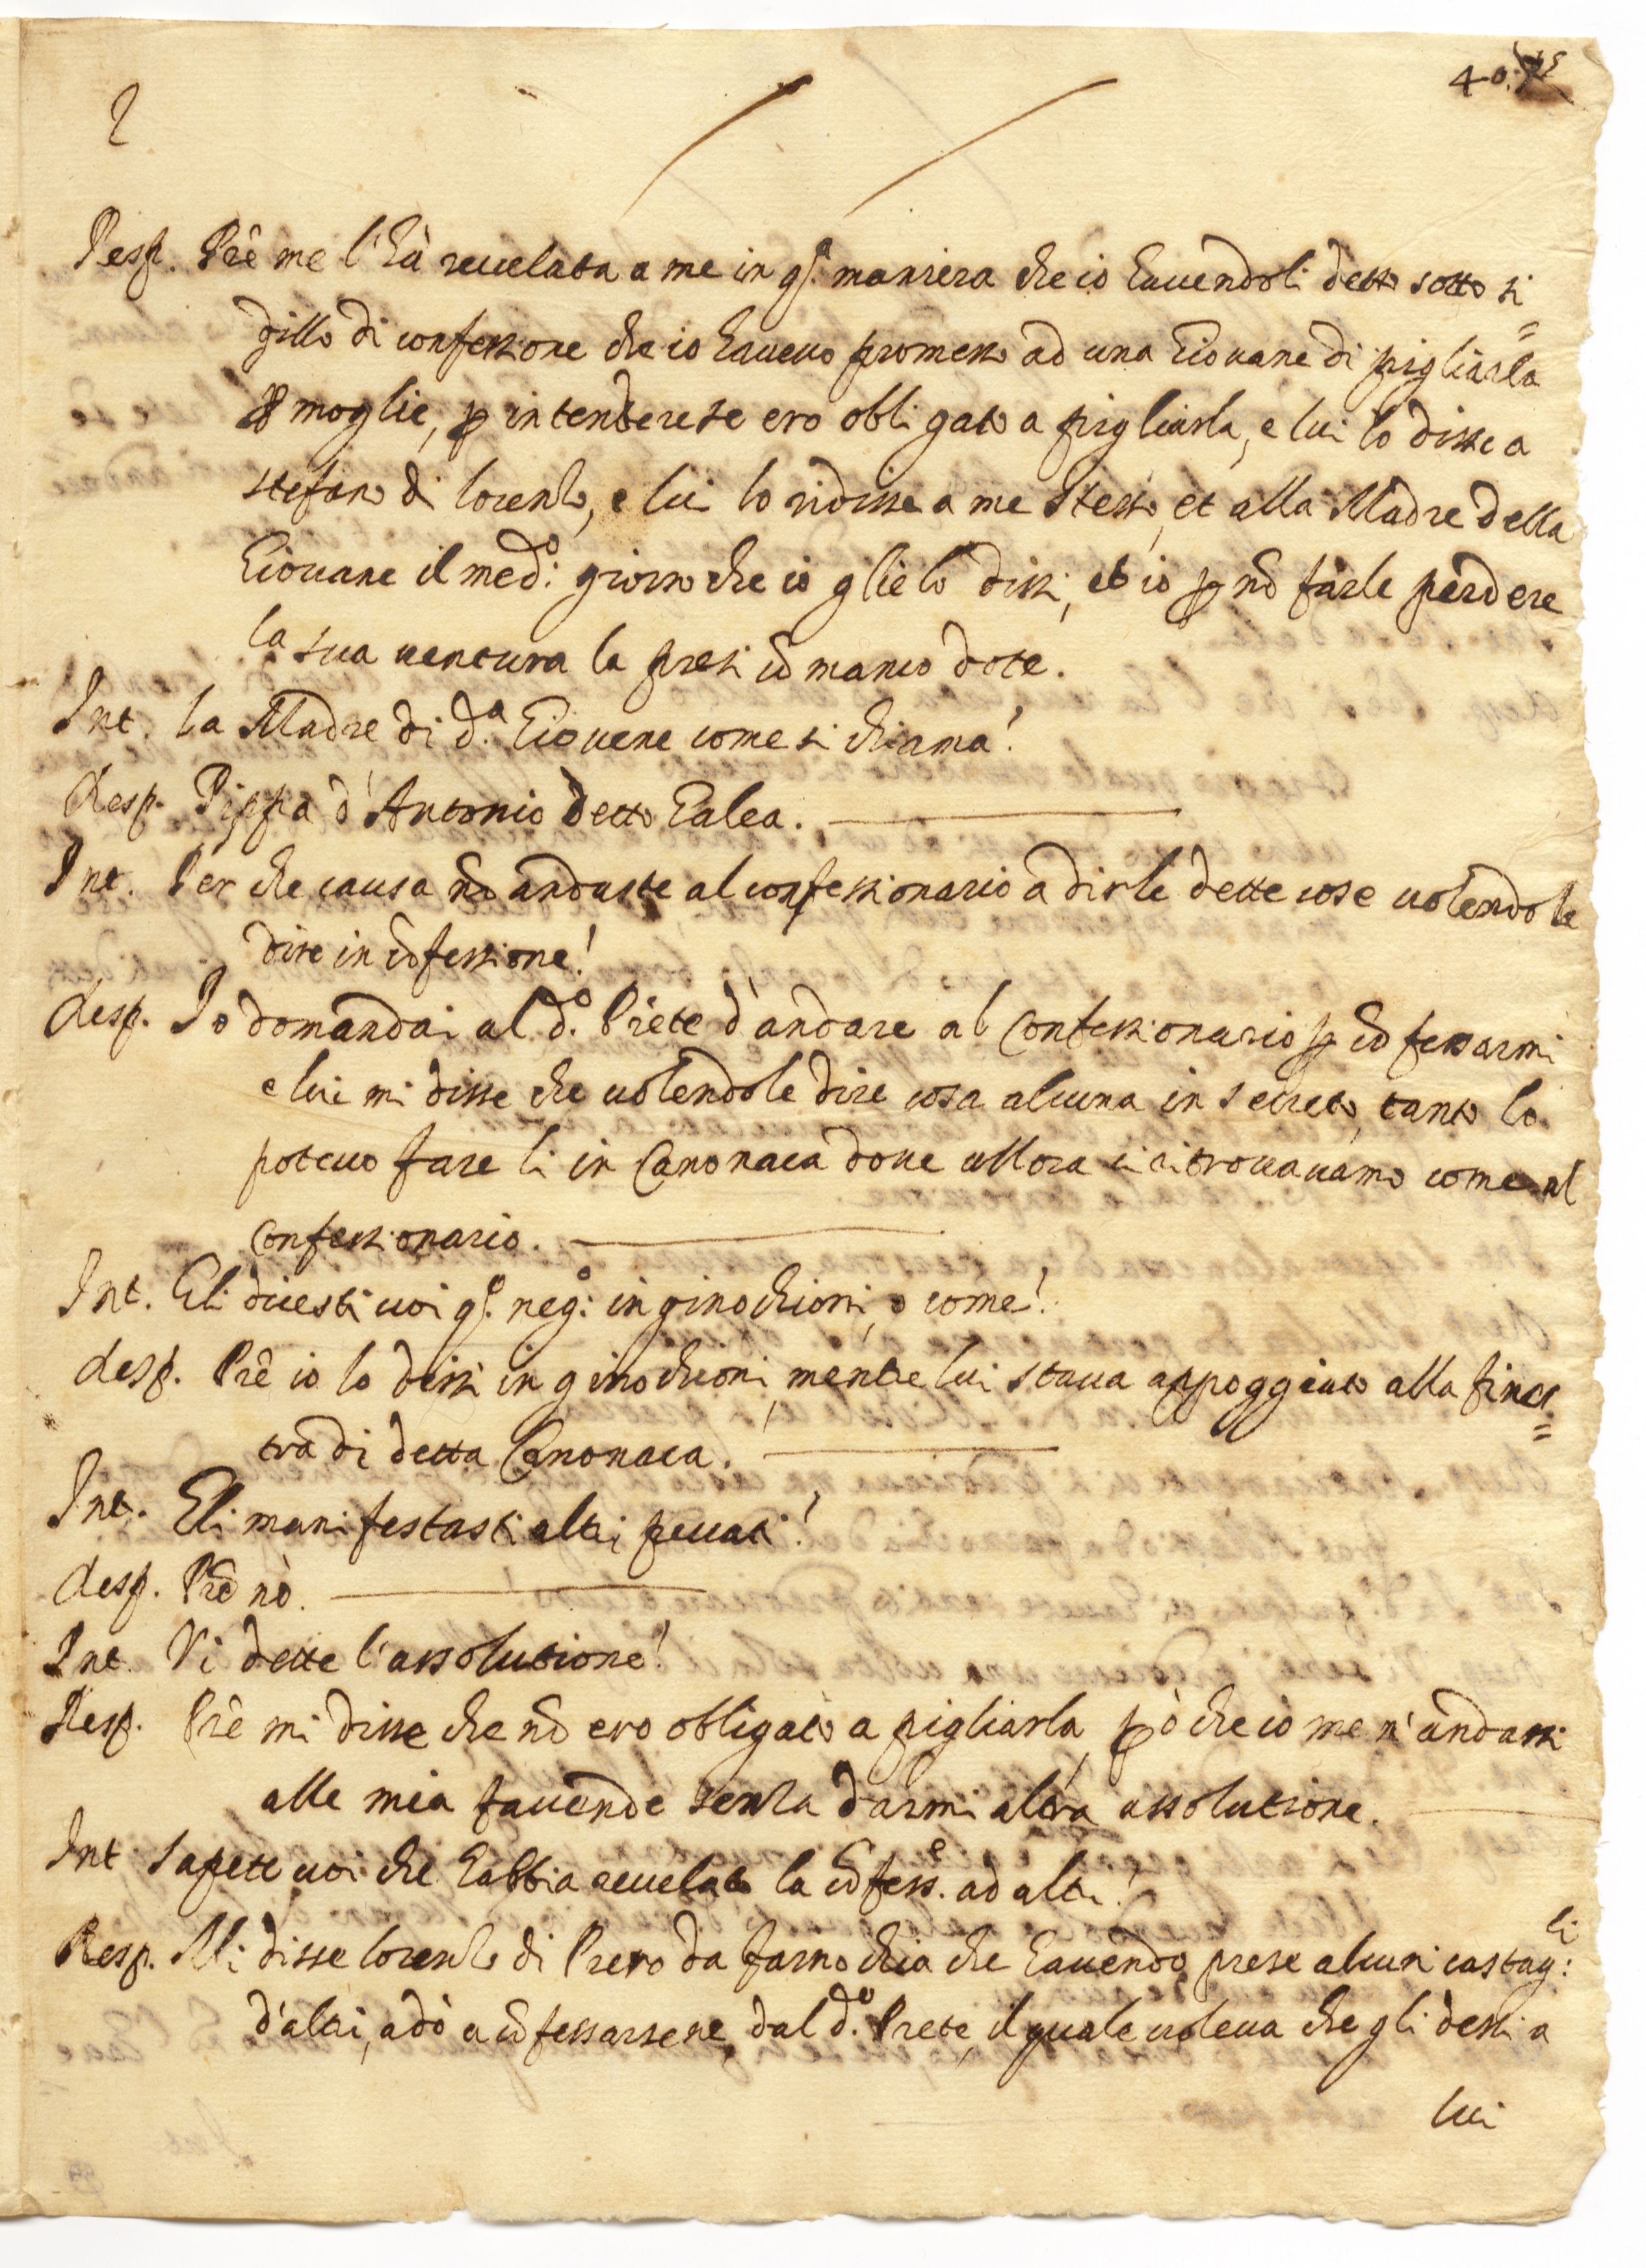 2
40.
Resp. Prê me l'hà revelata a me in q.ª maniera che io havendoli detto sotto si=
gillo di confessione che io havevo promesso ad una Giovane di pigliarla
p moglie, p intendere se ero obbligato a pigliarla, e lui lo disse a
stefano di lorenzo, e lui lo ridisse a me stesso, et alla Madre della
Giovane il med:º giorno che io glie lo dissi, et io p nō farle perdere
la sua ventura la presi cō manco dote.
Int. la Madre di d.ª Giovene come si chiama?
Resp. Pippa d'Antonio detto Galea.
Int. Per che causa nō andaste al confessionario a dirle dette cose volendole
dire in cōfessione?
Resp. Io domandai al d.º Prete d'andare al Confessionario p cōfessarmi
e lui mi disse che volendole dire cosa alcuna in secreto, tanto lo
potevo fare li in Canonaca dove allora ci ritrovavamo come al
Confessionario.
Int. Gli dicesti voi q.º neg:º in ginochioni, o come?
Resp. Prê io lo dissi in ginochioni, mentre lui stava appoggiato alla fines=
tra di detta Canonaca.
Int. Gli manifestasti altri peccati?
Resp. Prê nò.
Int. Vi dette l'assolutione?
Resp. Prê mi disse che nō ero obligato a pigliarla, pò che io me n'andassi
alle mia faccende senza darmi altra assolutione.
Int Sapete voi che habbia revelato la cōfess.e ad altri?
Resp. Mi disse lorenzo di Piero da farnochia che havendo prese alcuni castag:li
d'altri, adò a cōfessarsene dal d.º Prete, il quale voleva che gli dessi a
lui